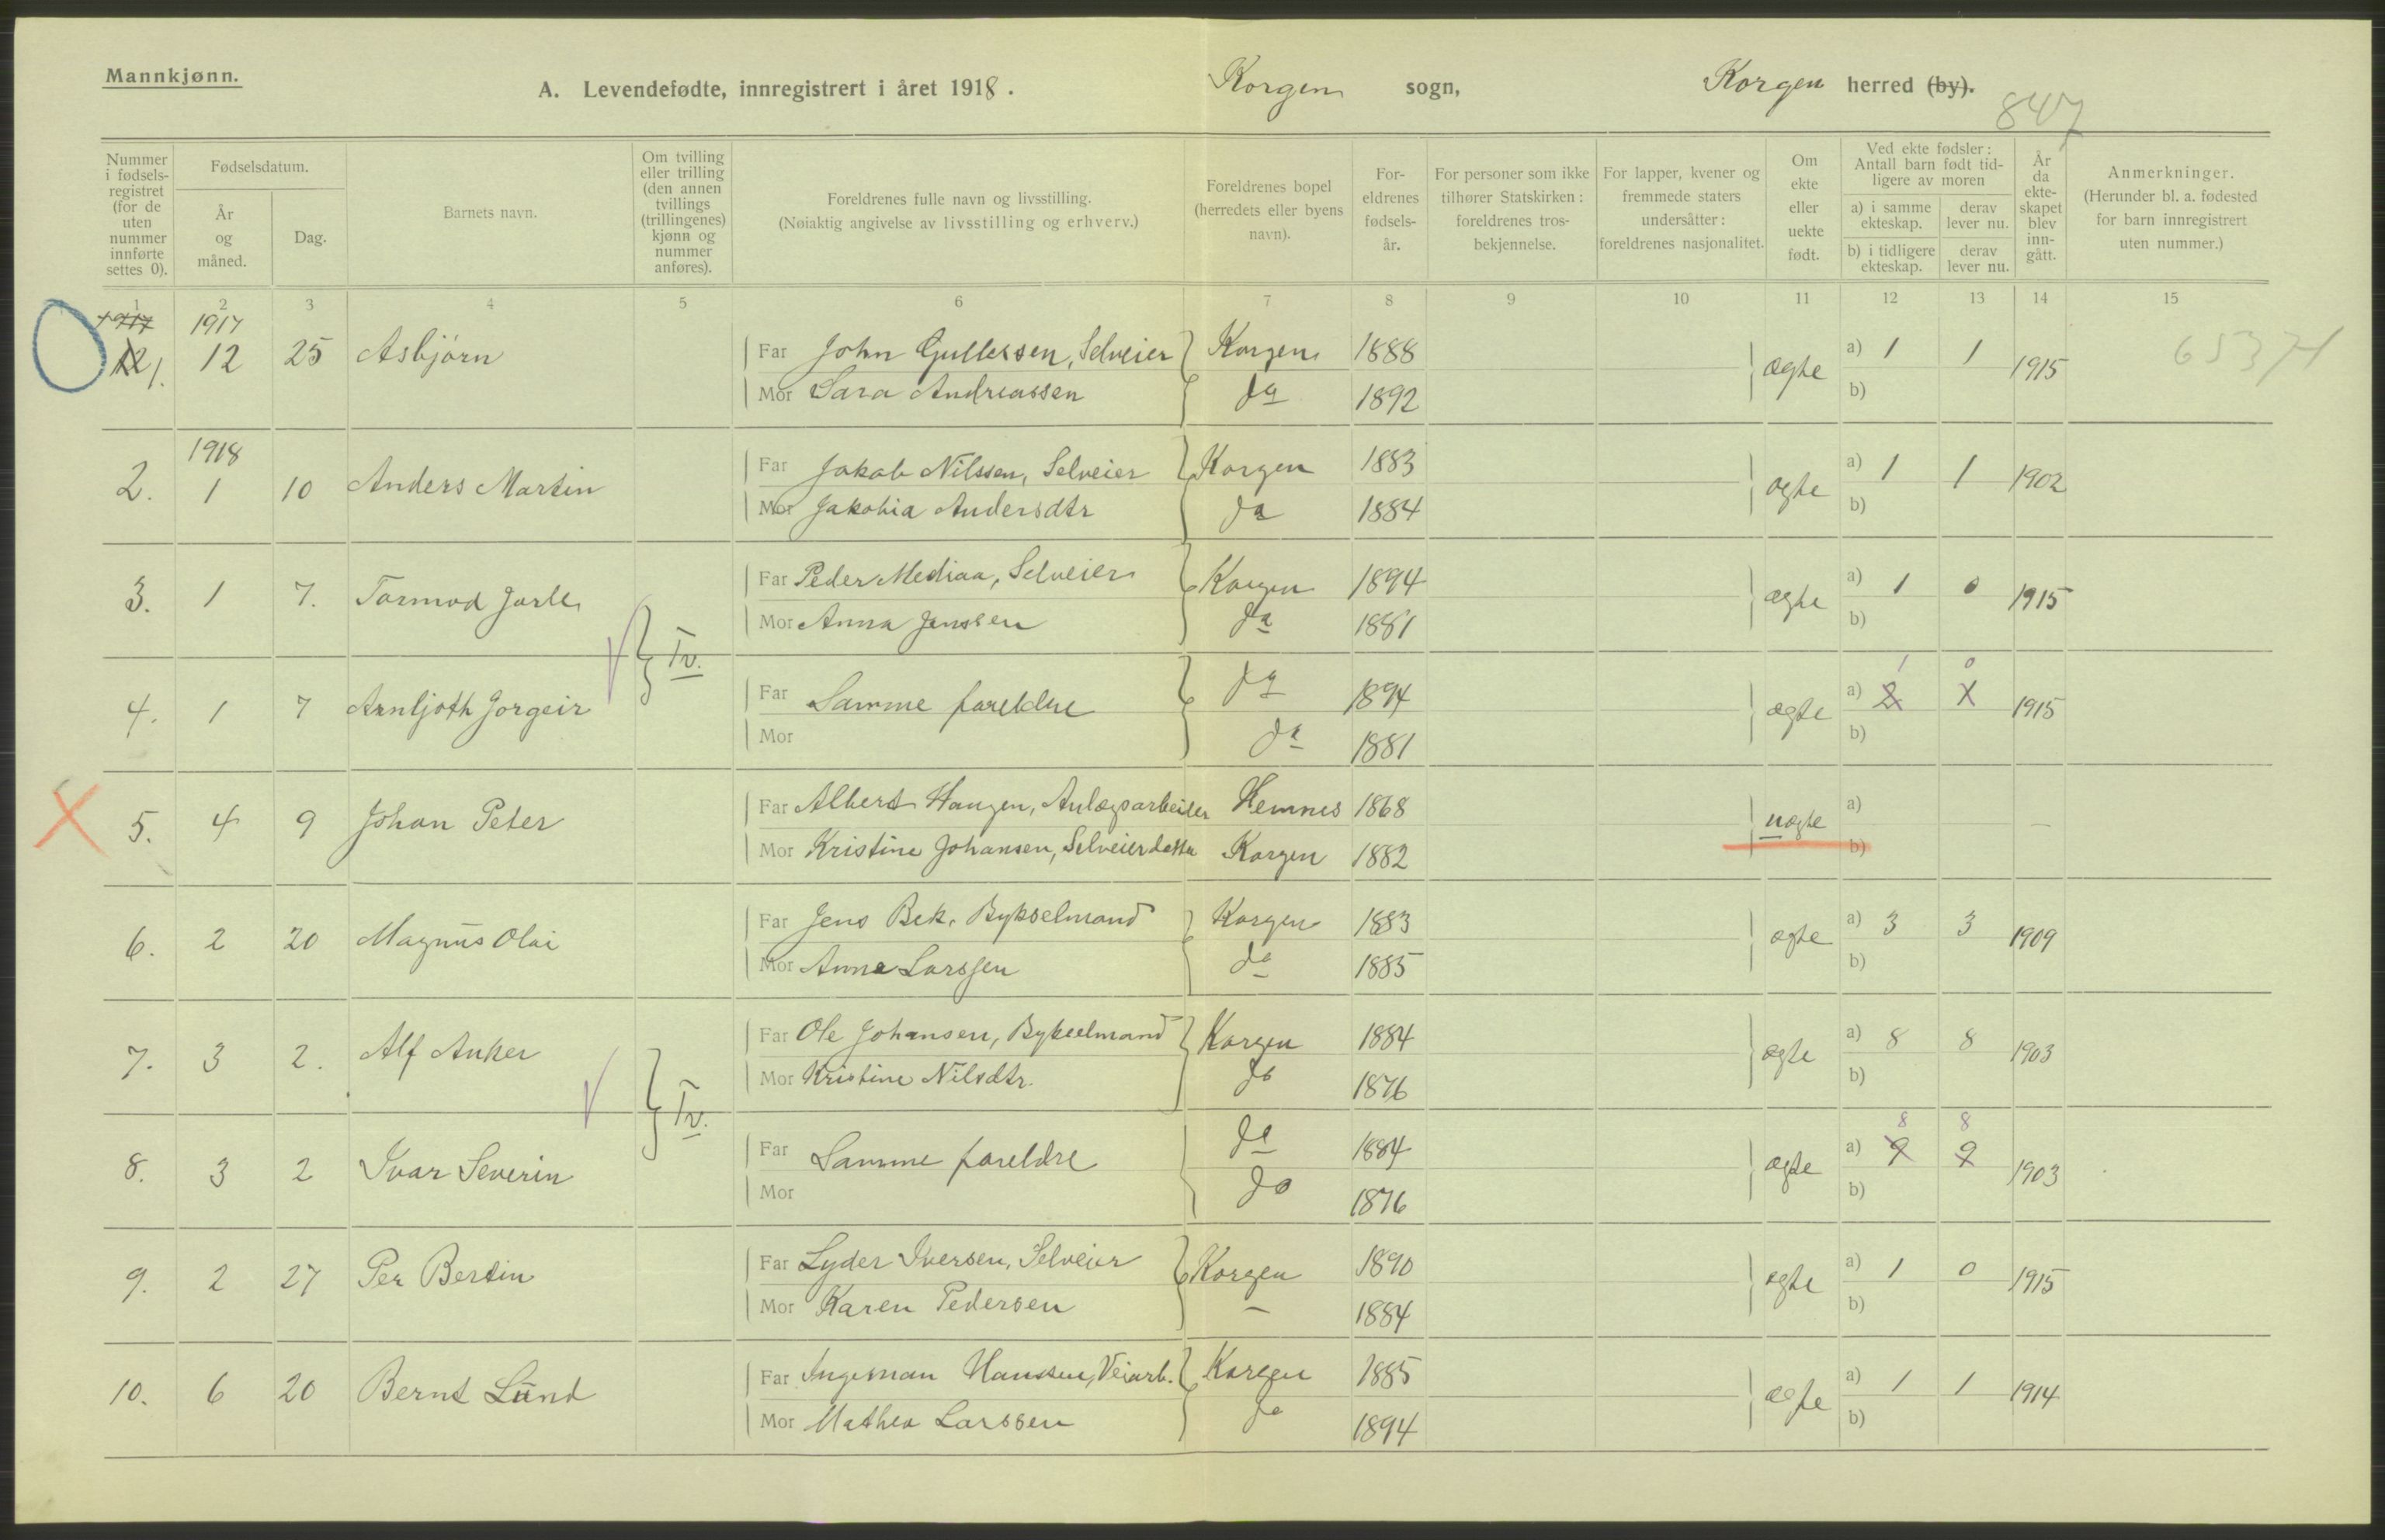 Mannkjønn.
A. Levendefødte, innregistrert i året 1918. Korgen sogn, Korgen herred (by).
847
Nummer i fødsels-registret (for de uten nummer innførte settes 0).
Fødselsdatum.
År og måned.
Dag.
Barnets navn.
Om tvilling eller trilling (den annen tvillings (trillingenes) kjønn og nummer anføres).
Foreldrenes fulle navn og livsstilling.
(Nøiaktig angivelse av livsstilling og erhverv.)
Foreldrenes bopel (herredets eller byens navn).
For-eldrenes fødsels-år.
For personer som ikke tilhører Statskirken: foreldrenes tros-bekjennelse.
For lapper, kvener og fremmede staters undersåtter: foreldrenes nasjonalitet.
Om ekte eller uekte født.
Ved ekte fødsler: Antall barn født tid-ligere av moren
a) i samme ekteskap. derav lever nu.
b) i tidligere ekteskap. derav lever nu.
År da ekte-skapet blev inn-gått.
Anmerkninger.
(Herunder bl. a. fødested for barn innregistrert uten nummer.)
1 2 3 4 5 6 7 8 9 10 11 12 13 14 15
1917 1917
12 1. 12 25 Asbjörn Far John Gullessen, Selveier Korgen 1888 ægte a) 1 1 1915 65371
Mor Sara Andreassen do 1892 b)
1918
2. 1 10 Anders Martin Far Jakob Nilssen, Selveier Korgen 1883 ægte a) 1 1 1902
Mor Jakobia Andersdtr do 1884 b)
3. 1 7. Tormod Jarle Far Peder Mediaa, Selveier Korgen 1894 ægte a) 1 0 1915
Mor Anna Jenssen do 1881 b)
Tv.
1 0
4. 1 7 Arnljoth Jorgeir Far Samme foreldre do 1894 ægte a) 2 1 1915
Mor do 1881 b)
5. 4 9 Johan Peter Far Albert Haugen, Anlægsarbeider Hemnes 1868 uægte a)
Mor Kristine Johansen, Selveierdatter Korgen 1882 b)
6. 2 20 Magnus Olai Far Jens Bek. Bykselmand Korgen 1883 ægte a) 3 3 1909
Mor Anna Larssen do 1885 b)
7. 3 2. Alf Anker Far Ole Johansen, Bykselmand Korgen 1884 ægte a) 8 8 1903
Mor Kristine Nilsdtr. do 1876 b)
Tv.
8 8
8. 3 2 Ivar Severin Far Samme foreldre do 1884 ægte a) 9 9 1903
Mor do 1876 b)
9. 2 27 Per Bertin Far Lyder Iversen, Selveier Korgen 1890 ægte a) 1 0 1915
Mor Karen Pedersen – 1884 b)
10. 6 20 Bernt Lund Far Ingeman Hanssen, Veiarb. Korgen 1885 ægte a) 1 1 1914
Mor Mathea Larssen do 1894 b)